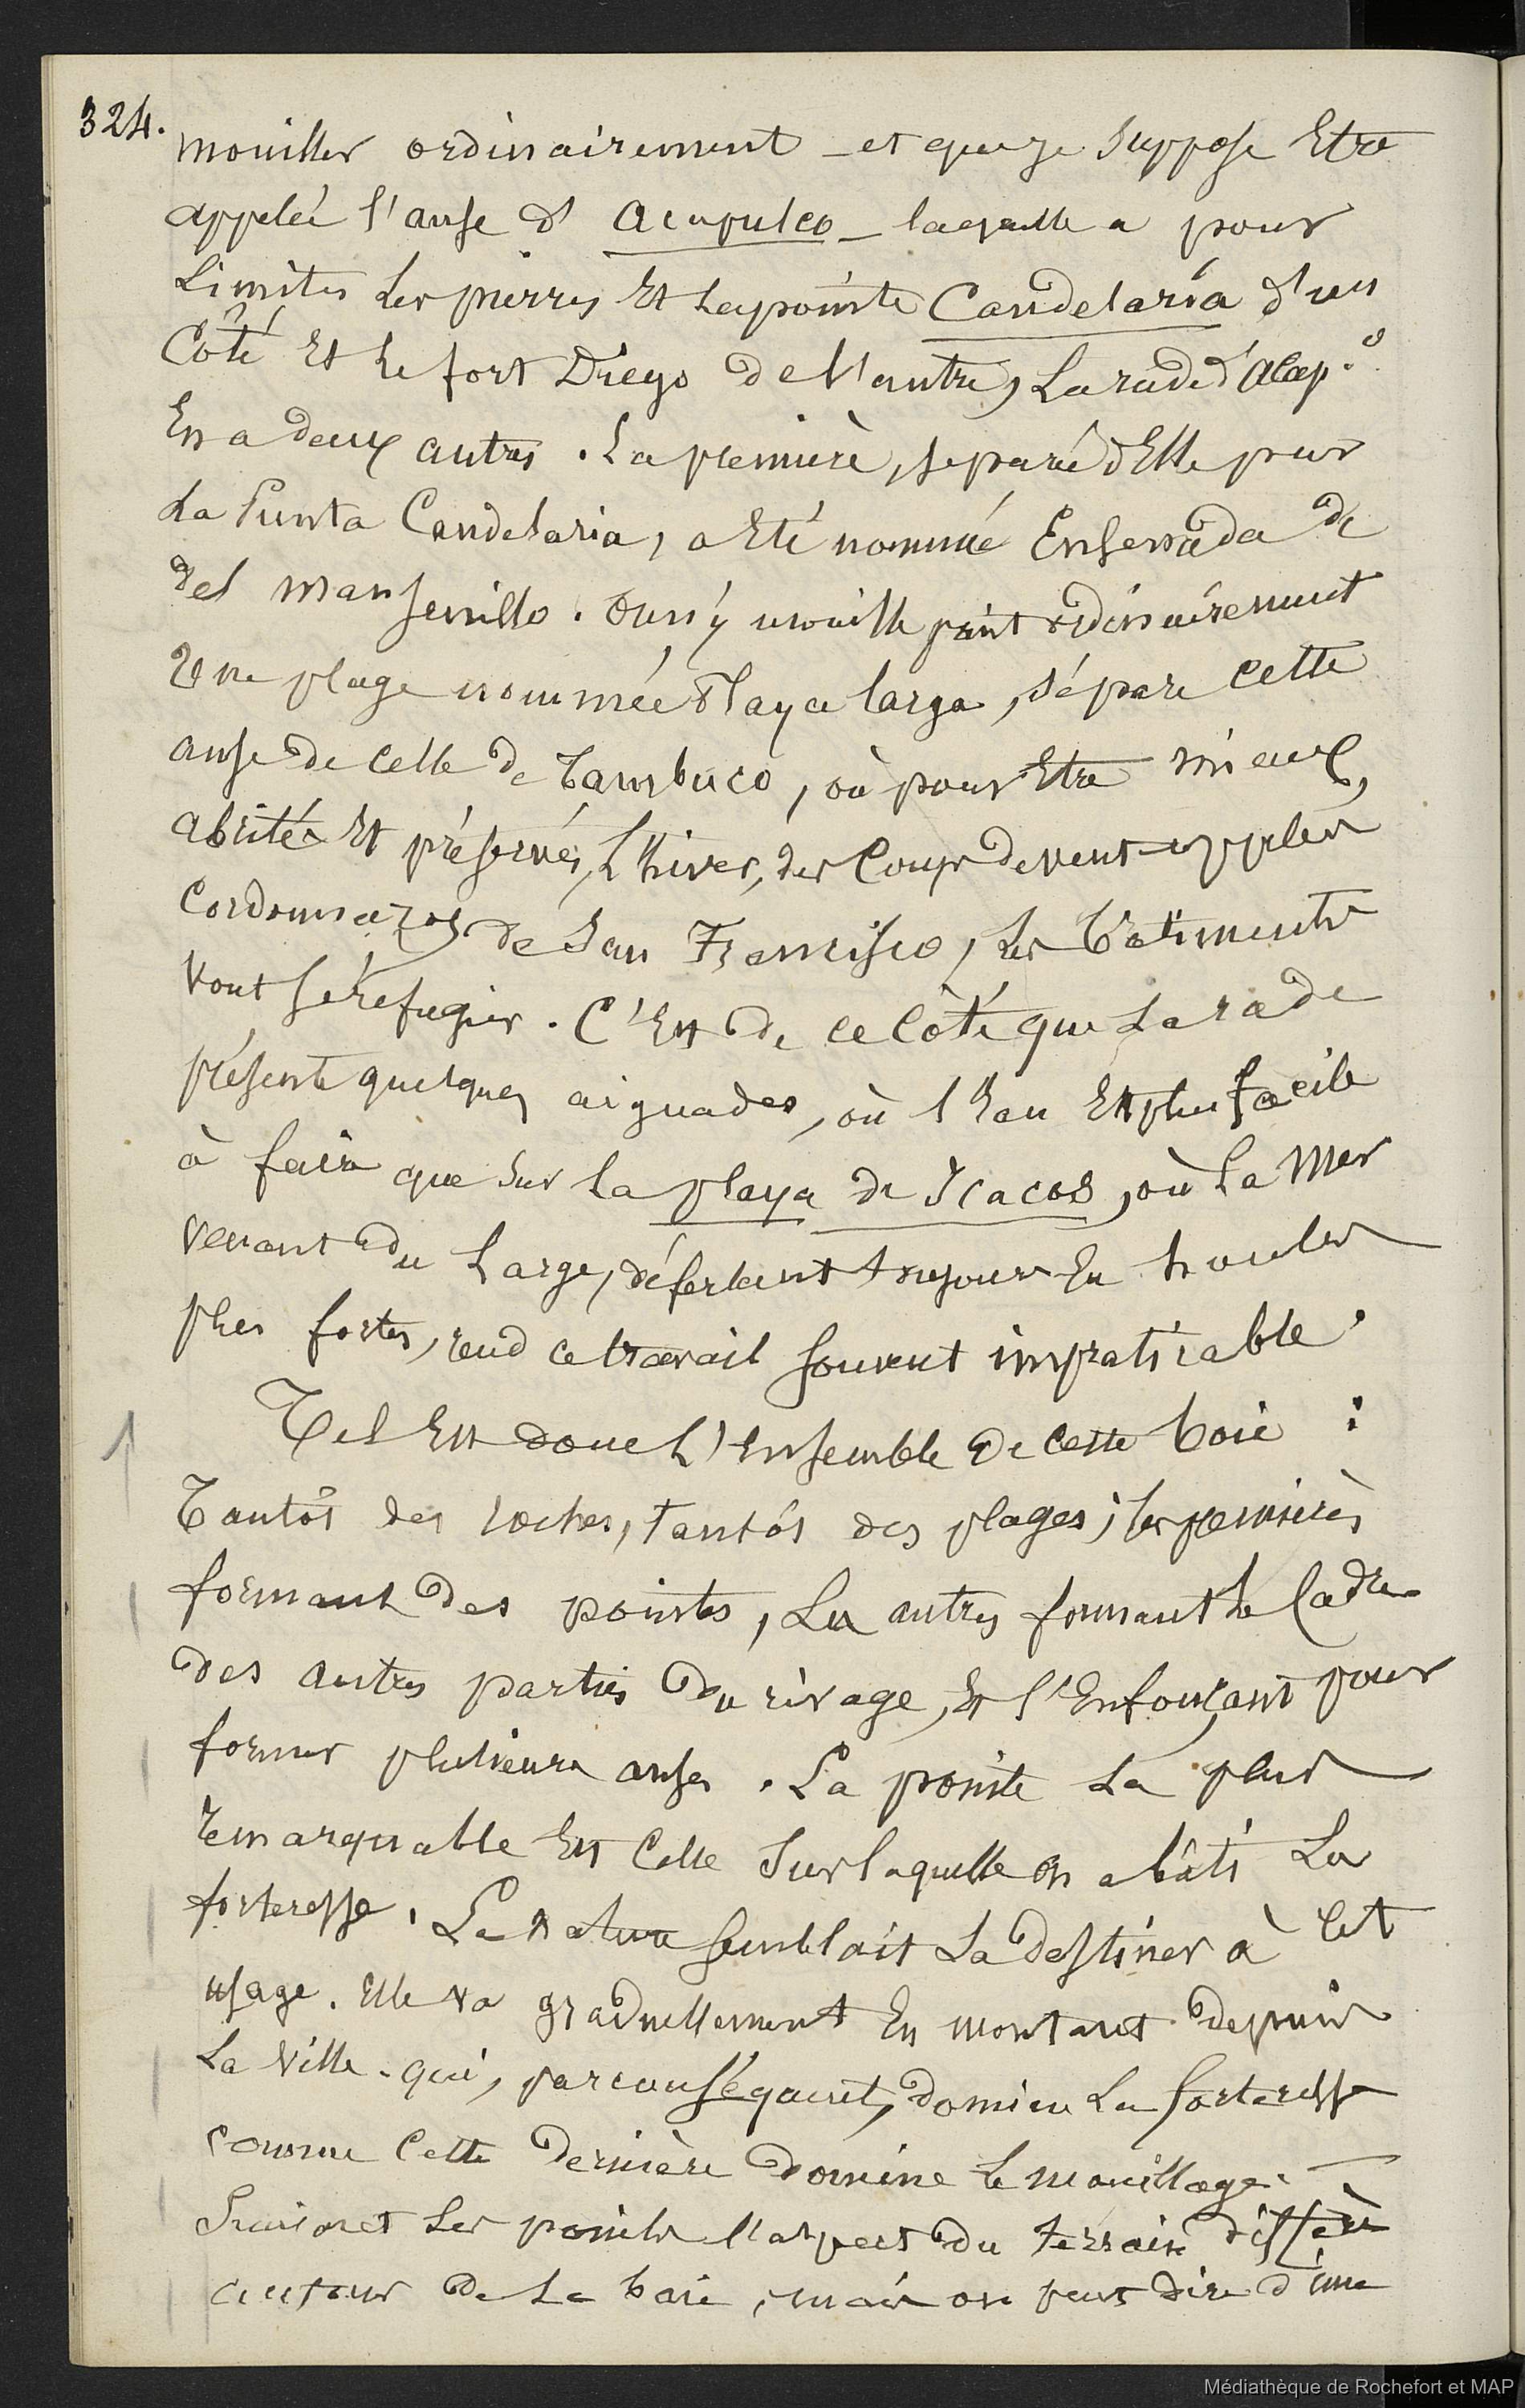 324.
mouiller ordinairement _ et que je suppose Etre
appelée l'anse d' Acapulco _ laquelle a pour
Limites les pierres Et la pointe Candelaria d'un
Côté Et le fort Diego de l'autre, La rade d'Acap.o
En a deux autres. La première, séparée d'Elle par
La Punta Candelaria, a Eté nommée Ensenada de
del Mansenillo. On n'y mouille point ordinairement
Une plage nommée Playa larga, sépare cette
anse de celle de Tambuco, où pour Etre mieux
abrités Et préservés, L'hiver, des Coups de vent appelés
Cordonnazos de San Francisco, les Bâtiments
vont se réfugier. C'Est de ce côté que La rade
présente quelques aiguades, où l'Eau Est plus facile
à faire que sur la playa de Icacos, où la Mer
venant du Large, déferlant toujours En houles
plus fortes, rend ce travail souvent impraticable.
Tel Est donc L'Ensemble de cette baie :
Tantôt des roches, tantôt des plages; les premières
formant des pointes, Les autres formant le Cadre
des autres parties du rivage, Et s'Enfonçant pour
former plusieurs anses. La pointe La plus
remarquable Est Celle sur laquelle on a bâti La
forteresse. La Nature semblait La destiner à Cet
usage. Elle va graduellement En montant depuis
La Ville. qui, par conséquent, domine La forteresse
comme Cette dernière domine le mouillage.
Suivant les points l'aspect du terrain diffère
autour de La baie, mais on peut dire d'une
Médiathèque de Rochefort et MAP